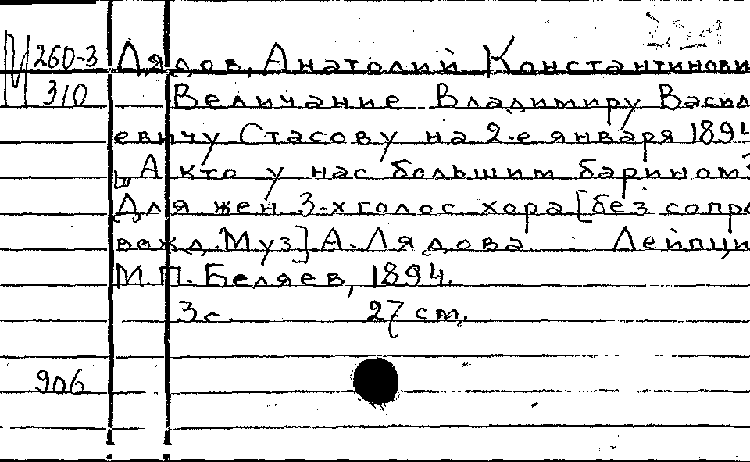 М 260-3 Лядов, Анатолий Константинови
310 Величание Владимиру Васил
евичу Стасову на 2-е января 1894
„А кто у нас большим барином?
Для жен. 3-х голос. хора [без сопро
вожд. Муз] А. Лядова Лейпци
М.П. Беляев, 1894.
3 с. 27 см.
906